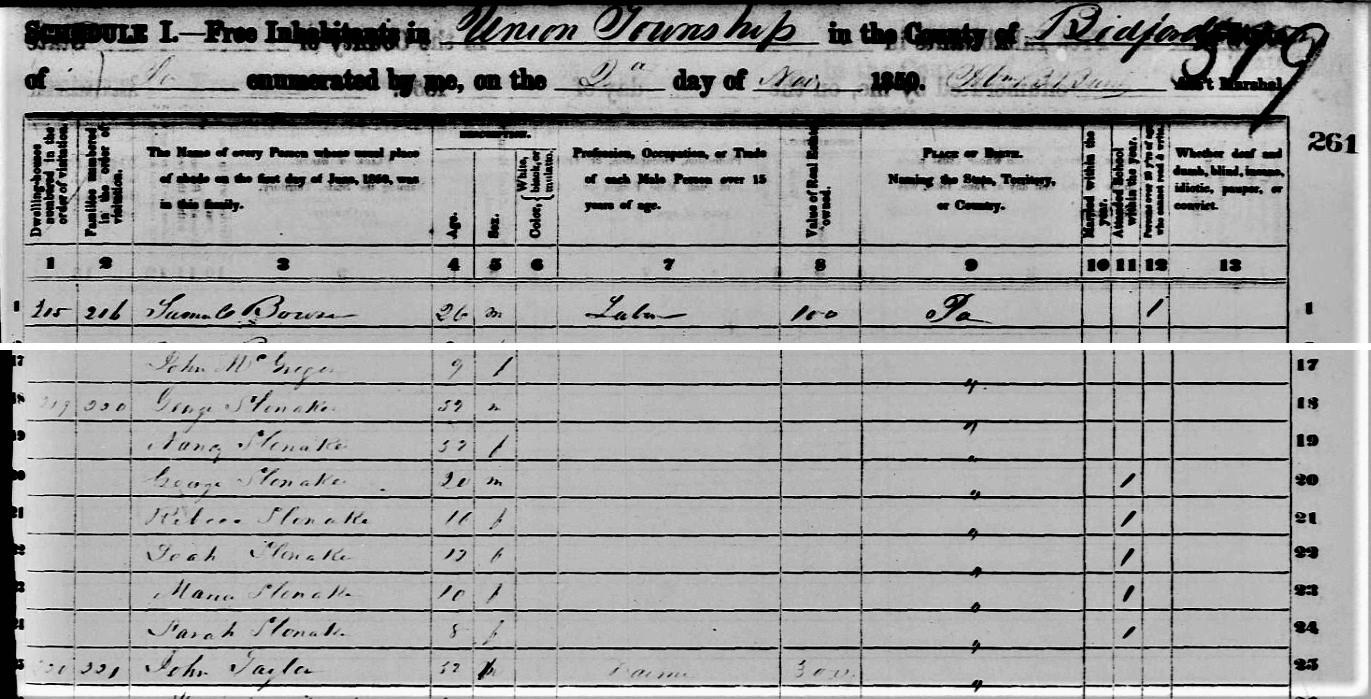 SCHEDULE I.—Free Inhabitants in Union Township in the County of Bidford
of Pa enumerated by me, on the day of Nov 1850. Ass't Marshal
379
261
Dwelling-houses numbered in the order of visitation.
Families numbered in the order of visitation.
The Name of every Person whose usual place of abode on the first day of June, 1850, was in this family.
DESCRIPTION.
Age.
Sex.
Color, { White, black, or mulatto.
Profession, Occupation, or Trade of each Male Person over 15 years of age.
Value of Real Estate owned.
PLACE OF BIRTH. Naming the State, Territory, or Country.
Married within the year.
Attended School within the year.
Persons over 20 y'rs of age who cannot read & write.
Whether deaf and dumb, blind, insane, idiotic, pauper, or convict.
1 2 3 4 5 6 7 8 9 10 11 12 13
1 215 216 Bowse 26 m Labor 100 Pa 1 1
17 John McGreger 9 f " 17
18 219 220 George Slonake m " 18
19 Nancy Slonake f " 19
20 George Slonake 20 m " 1 20
21 Slonake 16 f " 1 21
22 Slonake f " 1 22
23 Maria Slonake 10 f " 1 23
24 Sarah Slonake 8 f " 1 24
25 220 221 John Taylor 300 " 25